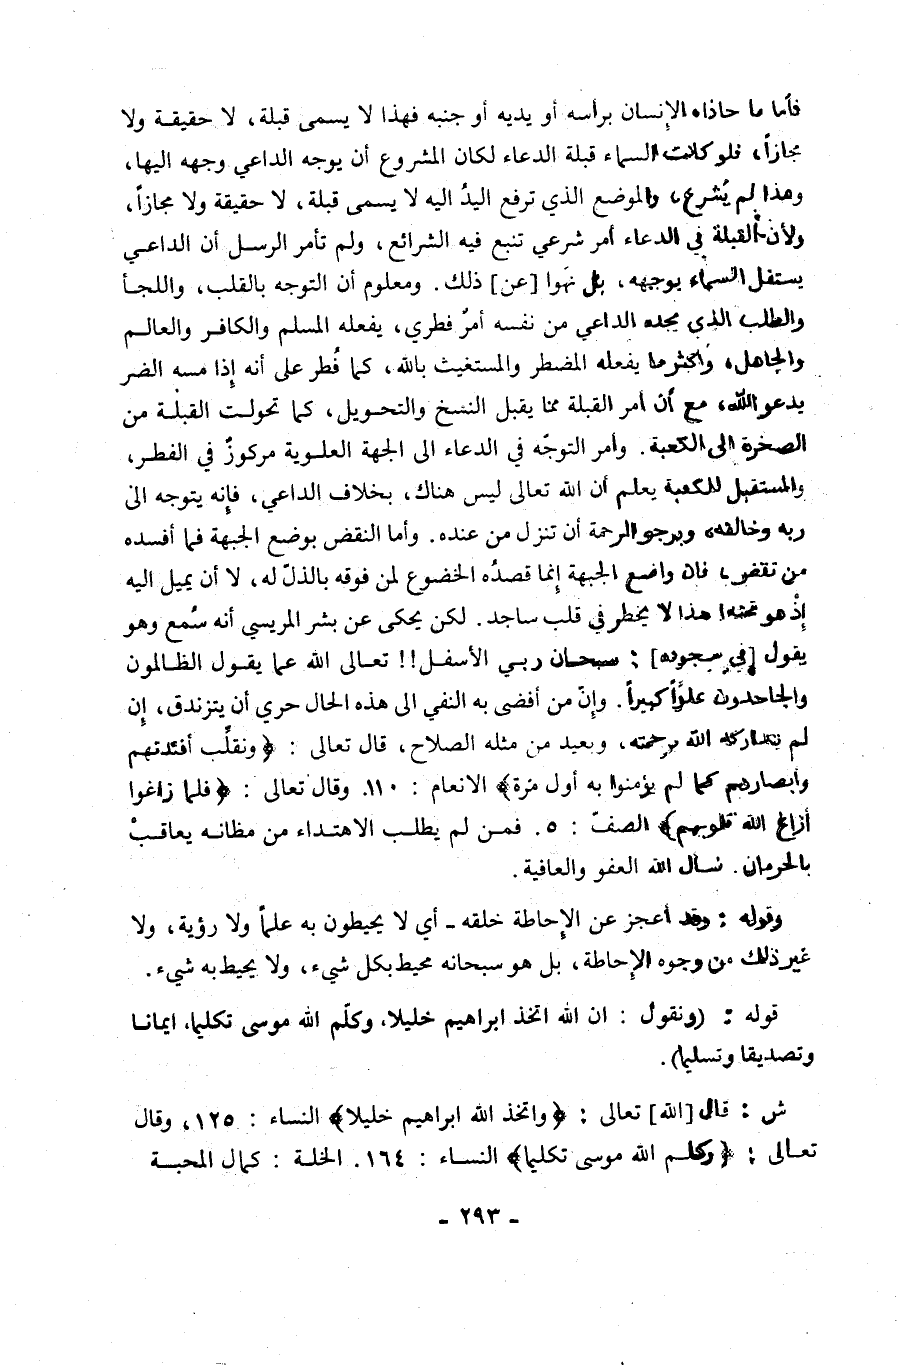 فأما ما حاذاه الإنسان برأسه أو يديه أو جنبه فهذا لا يسمى قبلة، لا حقيقة ولا
مجازاً، فلو كانت السماء قبلة الدعاء لكان المشروع أن يوجه الداعي وجهه اليها،
وهذا لم يُشرع، والموضع الذي ترفع اليدُ اليه لا يسمى قبلة، لا حقيقة ولا مجازاً،
ولأن القبلة في الدعاء أمر شرعي تتبع فيه الشرائع، ولم تأمر الرسل أن الداعي
يستقل السماء بوجهه، بل نهَوا [عن] ذلك. ومعلوم أن التوجه بالقلب، واللجأ
والطلب الذي يجده الداعي من نفسه أمرٌ فطري، يفعله المسلم والكافر والعالم
والجاهل، وأكثر ما يفعله المضطر والمستغيث بالله، كما فُطر على أنه إذا مسه الضر
يدعو الله، مع أن أمر القبلة مما يقبل النسخ والتحويل، كما تحولت القبلة من
الصخرة الى الكعبة. وأمر التوجّه في الدعاء الى الجهة العلوية مركوزٌ في الفطر،
والمستقبل للكعبة يعلم أن الله تعالى ليس هناك، بخلاف الداعي، فإنه يتوجه الى
ربه وخالقه، ويرجو الرحمة أن تنزل من عنده. وأما النقض بوضع الجبهة فما أفسده
من نقض، فان واضع الجبهة إنما قصدُه الخضوع لمن فوقه بالذلّ له، لا أن يميل اليه
إذْ هو تحته! هذا لا يخطر في قلب ساجد. لكن يحكى عن بشر المريسي أنه سُمع وهو
يقول [في سجوده] : سبحان ربي الأسفل!! تعالى الله عما يقول الظالمون
والجاحدون علوّاً كبيراً. وإنّ من أفضى به النفي الى هذه الحال حري أن يتزندق، إن
لم يتداركه الله برحمته، وبعيد من مثله الصلاح، قال تعالى : ﴿ونقلِّب أفئدتهم
وأبصارهم كما لم يؤمنوا به أول مرّة﴾ الانعام : ١١٠. وقال تعالى : ﴿فلما زاغوا
أزاغ الله قلوبهم﴾ الصفّ : ٥. فمن لم يطلب الاهتداء من مظانه يعاقبْ
بالحرمان. نسأل الله العفو والعافية.
وقوله : وقد أعجز عن الإحاطة خلقه ـ أي لا يحيطون به علماً ولا رؤية، ولا
غير ذلك من وجوه الإحاطة، بل هو سبحانه محيط بكل شيء، ولا يحيط به شيء.
قوله : (ونقول : ان الله اتخذ ابراهيم خليلا، وكلّم الله موسى تكليما، ايمانا
وتصديقا وتسليما).
ش : قال [الله] تعالى : ﴿واتخذ الله ابراهيم خليلا﴾ النساء : ١٢٥، وقال
تعالى : ﴿وكلم الله موسى تكليما﴾ النساء : ١٦٤. الخلة : كمال المحبة
ـ ٢٩٣ ـ